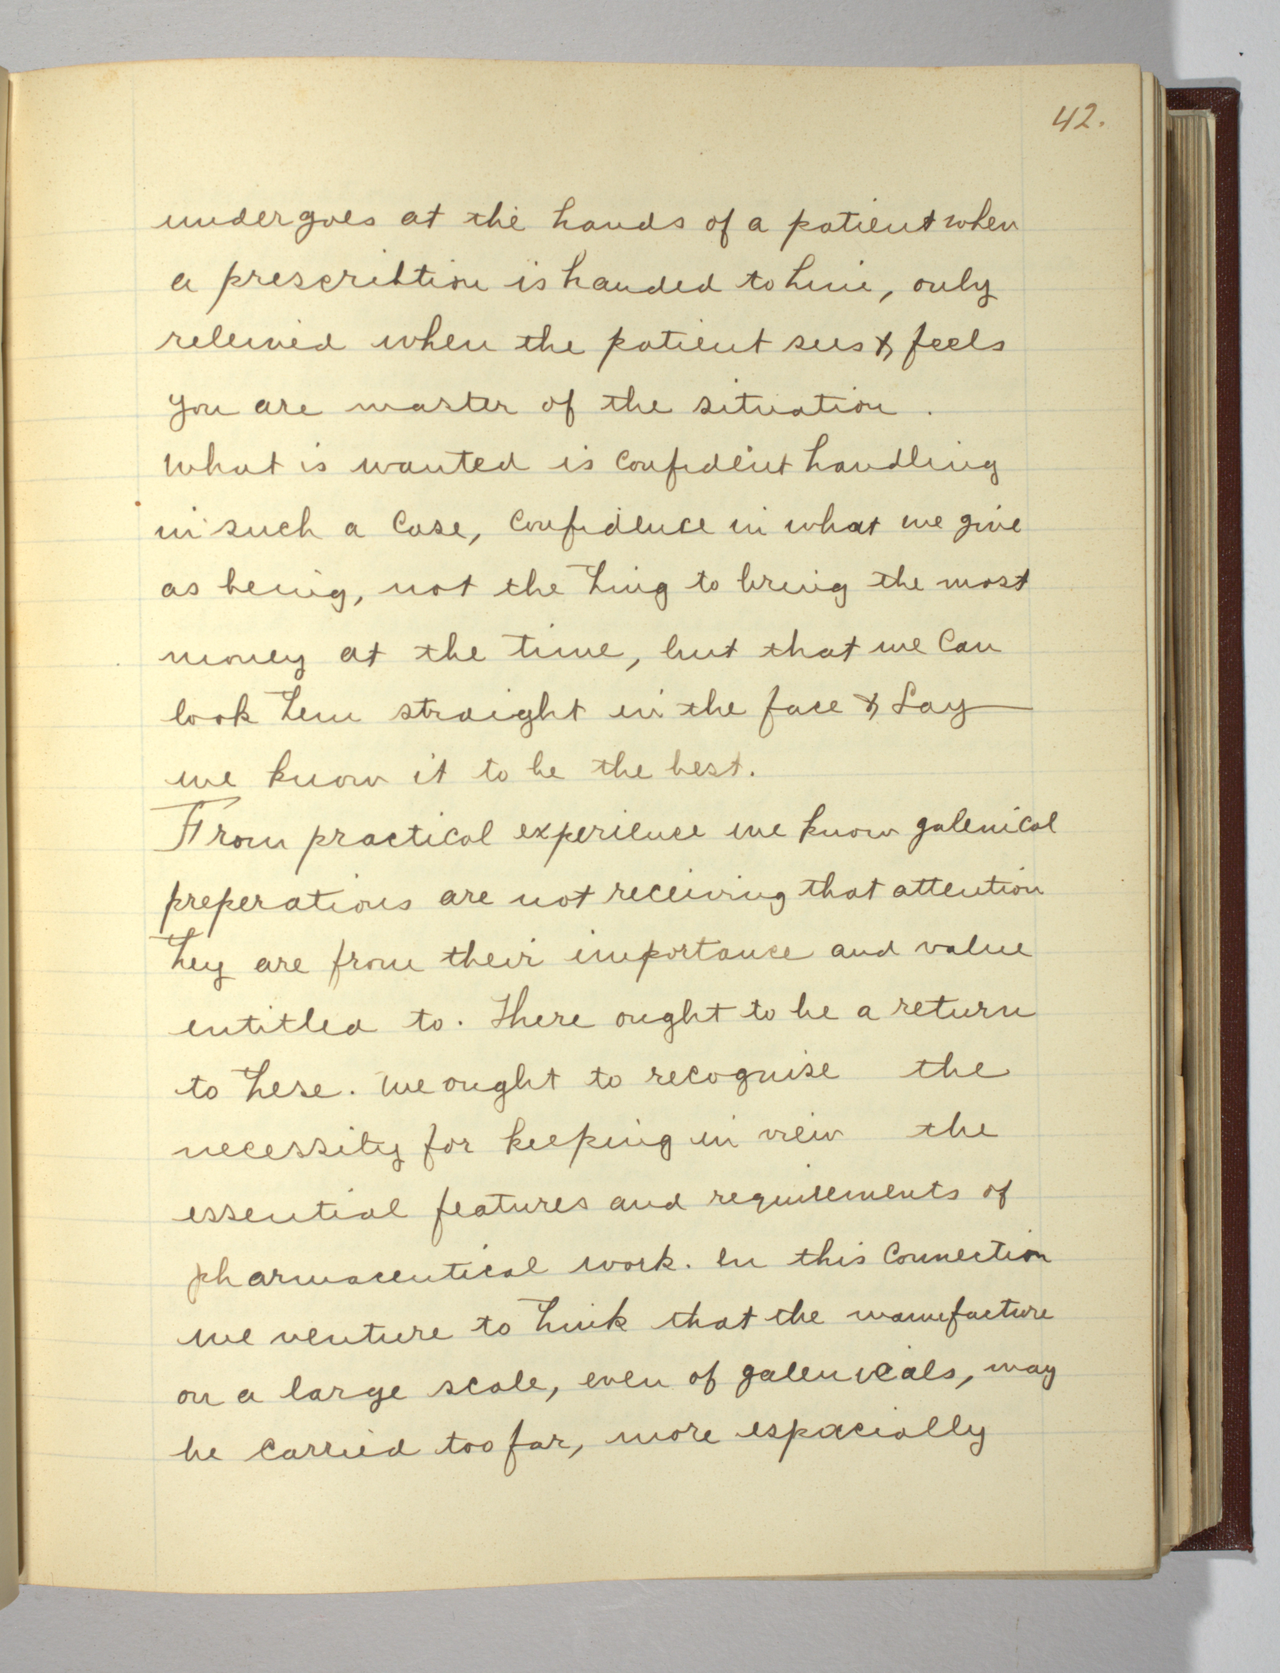 42.
undergoes at the hands of a patient when
a prescribtion is handed to him, only
releived when the patient sees & feels
you are master of the situation.
What is wanted is confident handling
in such a case, confidence in what we give
as being, not the thing to bring the most
money at the time, but that we can
look them straight in the face & say
we know it to be the best.
From practical experience we know galenical
preperations are not receiving that attention
they are from their importance and value
entitled to. There ought to be a return
to these. We ought to recognise the
necessity for keeping in view the
essential features and requirements of
pharmaceutical work. In this connection
we venture to think that the manufacture
on a large scale, even of galenicals, may
be carried too far, more espacially